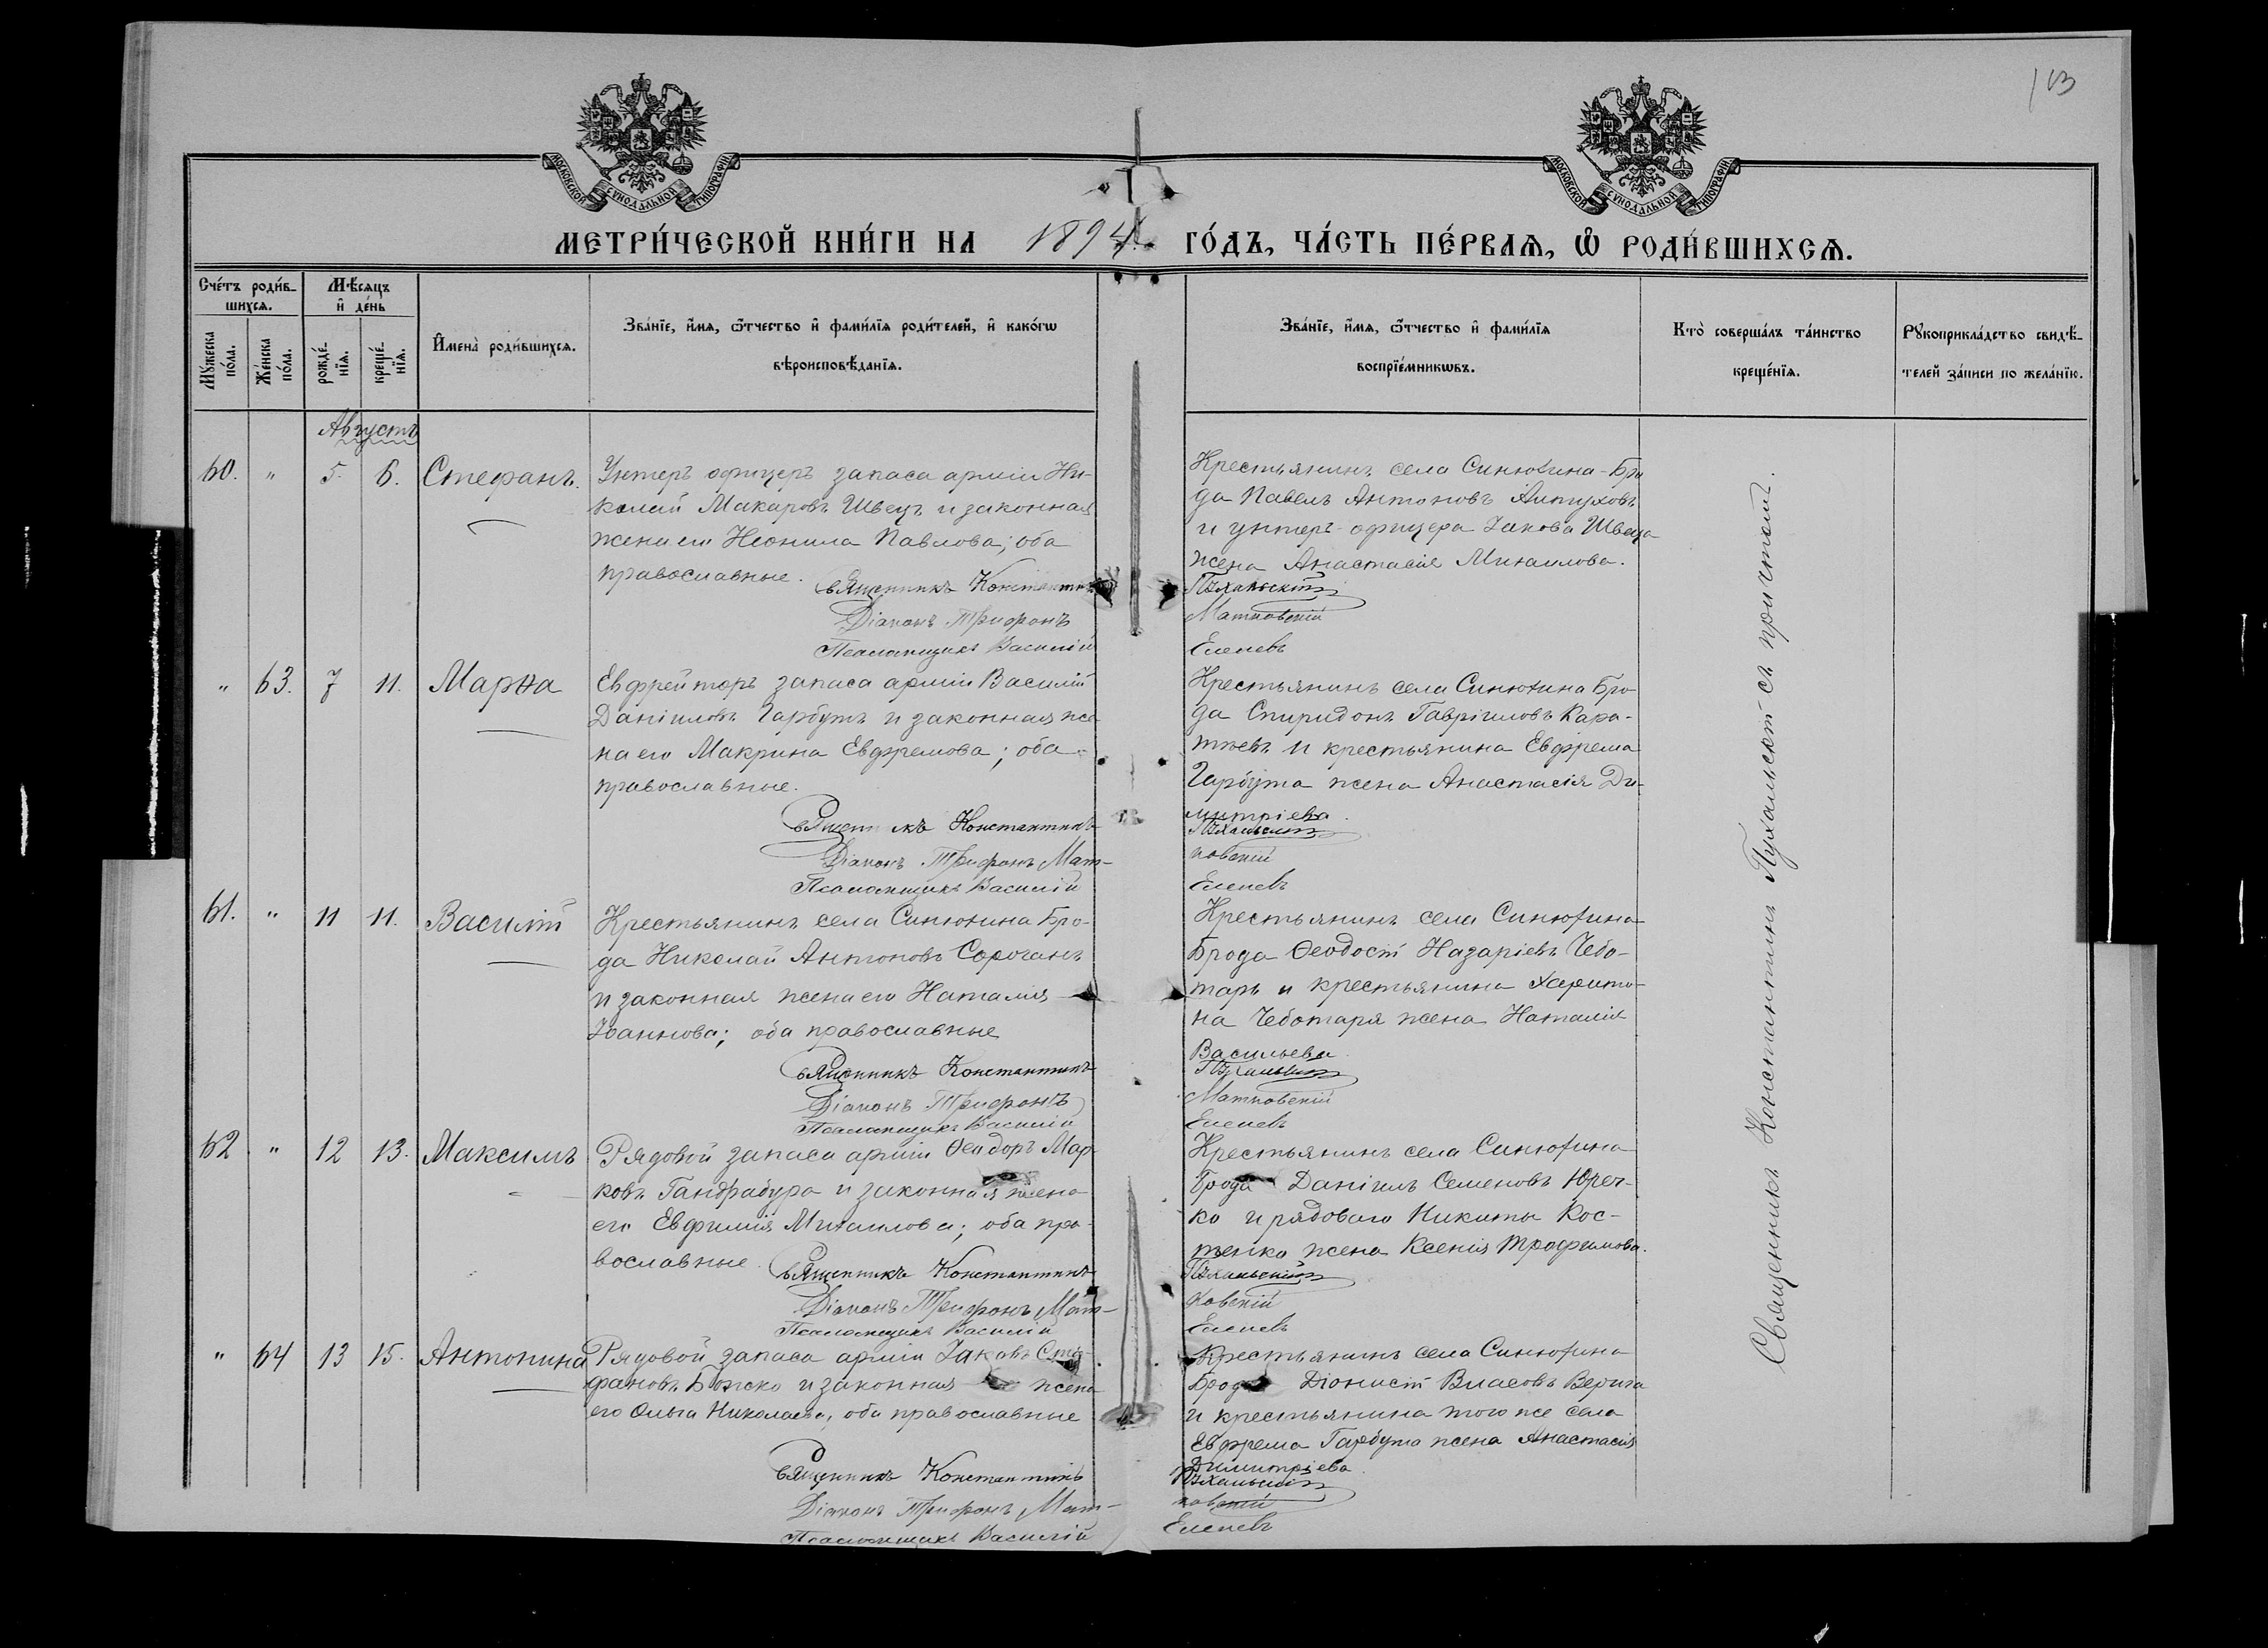 103
МОСКОВСКОЙ СѴНОДАЛЬНОЙ ТИПОГРАФІИ
МОСКОВСКОЙ СѴНОДАЛЬНОЙ ТИПОГРАФІИ
МЕТРИ́ЧЕСКОЙ КНИ́ГИ НА 1894 ГО́ДЪ, ЧА́СТЬ ПЕ́РВАѦ, Ѡ҆ РОДИ́ВШИХСѦ.
Сче́тъ роди́в-
шихсѧ.
Мꙋ́жеска по́ла.
Же́нска по́ла.
Мѣ́сѧцъ
и҆ де́нь
рожде́-
нїѧ.
креще́-
нїѧ.
И҆мена̀ роди́вшихсѧ.
Зва́нїе, и҆́мѧ, ѻ҆́тчество и҆ фами́лїѧ роди́телей, и҆ како́гѡ
вѣроисповѣ́данїѧ.
Зва́нїе, и҆́мѧ, ѻ҆́тчество и҆ фами́лїѧ
воспрїе́мникѡвъ.
Кто̀ соверша́лъ та́инство
креще́нїѧ.
Рꙋкоприкла́дство свидѣ́-
телей за́писи по жела́нїю.
Августъ
60. " 5. 6. Стефанъ.
Унтеръ офицеръ запаса арміи Ни-
колай Макаровъ Швецъ и законная
жена его Неонила Павлова; оба
православные.
Священникъ Константинъ
Діаконъ Трифонъ
Псаломщикъ Василій
Крестьянинъ села Синюхина-Бро
да Павелъ Антоновъ
и унтеръ-офицера Іакова Швеца
жена Анастасія Михаилова.
Пухальскій
Матковскій
Еленевъ
" 63. 7 11. Марѳа
Евфрейторъ запаса арміи Василій
Даніиловъ Гарбузъ и законная же
на его Макрина Евфремова; оба
православные.
Священникъ Константинъ
Діаконъ Трифонъ Мат-
Псаломщикъ Василій
Крестьянинъ села Синюхина Бро-
да Спиридонъ Гавріиловъ Кара-
и крестьянина Евфрема
жена Анастасія Ди-
митріева.
Пухальскій
ковскій
Еленевъ
61. " 11 11. Василій
Крестьянинъ села Синюхина Бро-
да Николай Антоновъ Сорочанъ
и законная жена его Наталія
Іоаннова; оба православные
Священникъ Константинъ
Діаконъ Трифонъ
Псаломщикъ Василій
Крестьянинъ села Синюхина
Брода Ѳеодосій Назаріевъ Чебо-
тарь и крестьянина Харито-
на Чеботаря жена Наталія
Васильева
Пухальскій
Матковскій
Еленевъ
62 " 12 13. Максимъ
Рядовой запаса арміи Ѳеодоръ Мар
ковъ Гандрабура и законная жена
его Евфимія Михаилова; оба пра-
вославные.
Священникъ Константинъ
Діаконъ Трифонъ Мат-
Псаломщикъ Василій
Крестьянинъ села Синюхина
Брода Даніилъ Семеновъ Юреч-
ко и рядового Никиты Кос-
тенко жена Ксенія Трофимова.
Пухальскій
ковскій
Еленевъ
" 64 13 15. Антонина
Рядовой запаса арміи Іаковъ Сте-
фановъ Божко и законная жена
его Ольга Николаева, оба православные
Священникъ Константинъ
Діаконъ Трифонъ Мат-
Псаломщикъ Василій
Крестьянинъ села Синюхина
Брода Діонисій Власовъ Верига
и крестьянина того же села
Евфрема жена Анастасія
Димитріева
Пухальскій
ковскій
Еленевъ
Священникъ Константинъ Пухальскій съ причтомъ.